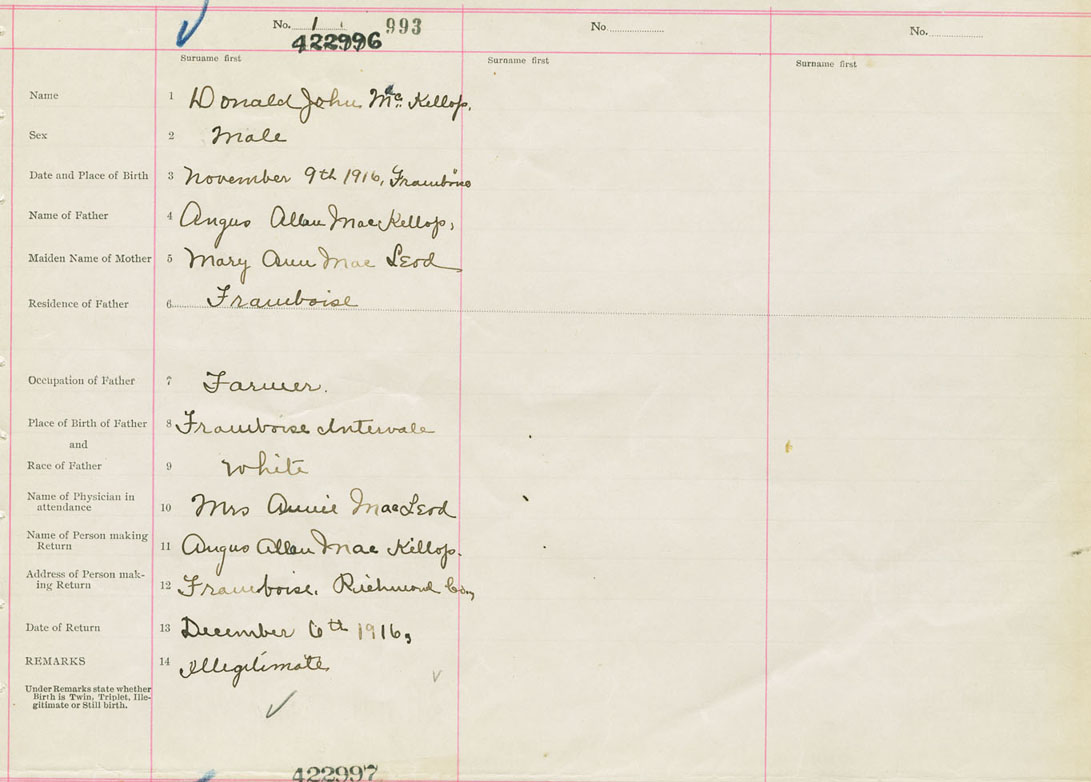 No. 1 993
422996
No
No.
Surname first
Surname first
Surname first
Name 1 Donald John Mc. Kellop.
Sex 2 Male
Date and Place of Birth 3 November 9th 1916, Framboise
Name of Father 4 Angus Allan MacKellop,
Maiden Name of Mother 5 Mary Ann Mac Leod
Residence of Father 6 Framboise
Occupation of Father 7 Farmer.
Place of Birth of Father 8 Framboise Intervale
and
Race of Father 9 White
Name of Physician in
attendance 10 Mrs Annie MacLeod
Name of Person making
Return 11 Angus Allan Mac Killop.
Address of Person mak-
ing Return 12 Framboise. Richmond Co,
Date of Return 13 December 6th 1916,
REMARKS 14 Illegitimate
Under Remarks state whether
Birth is Twin, Triplet, Ille-
gitimate or Still birth.
422997